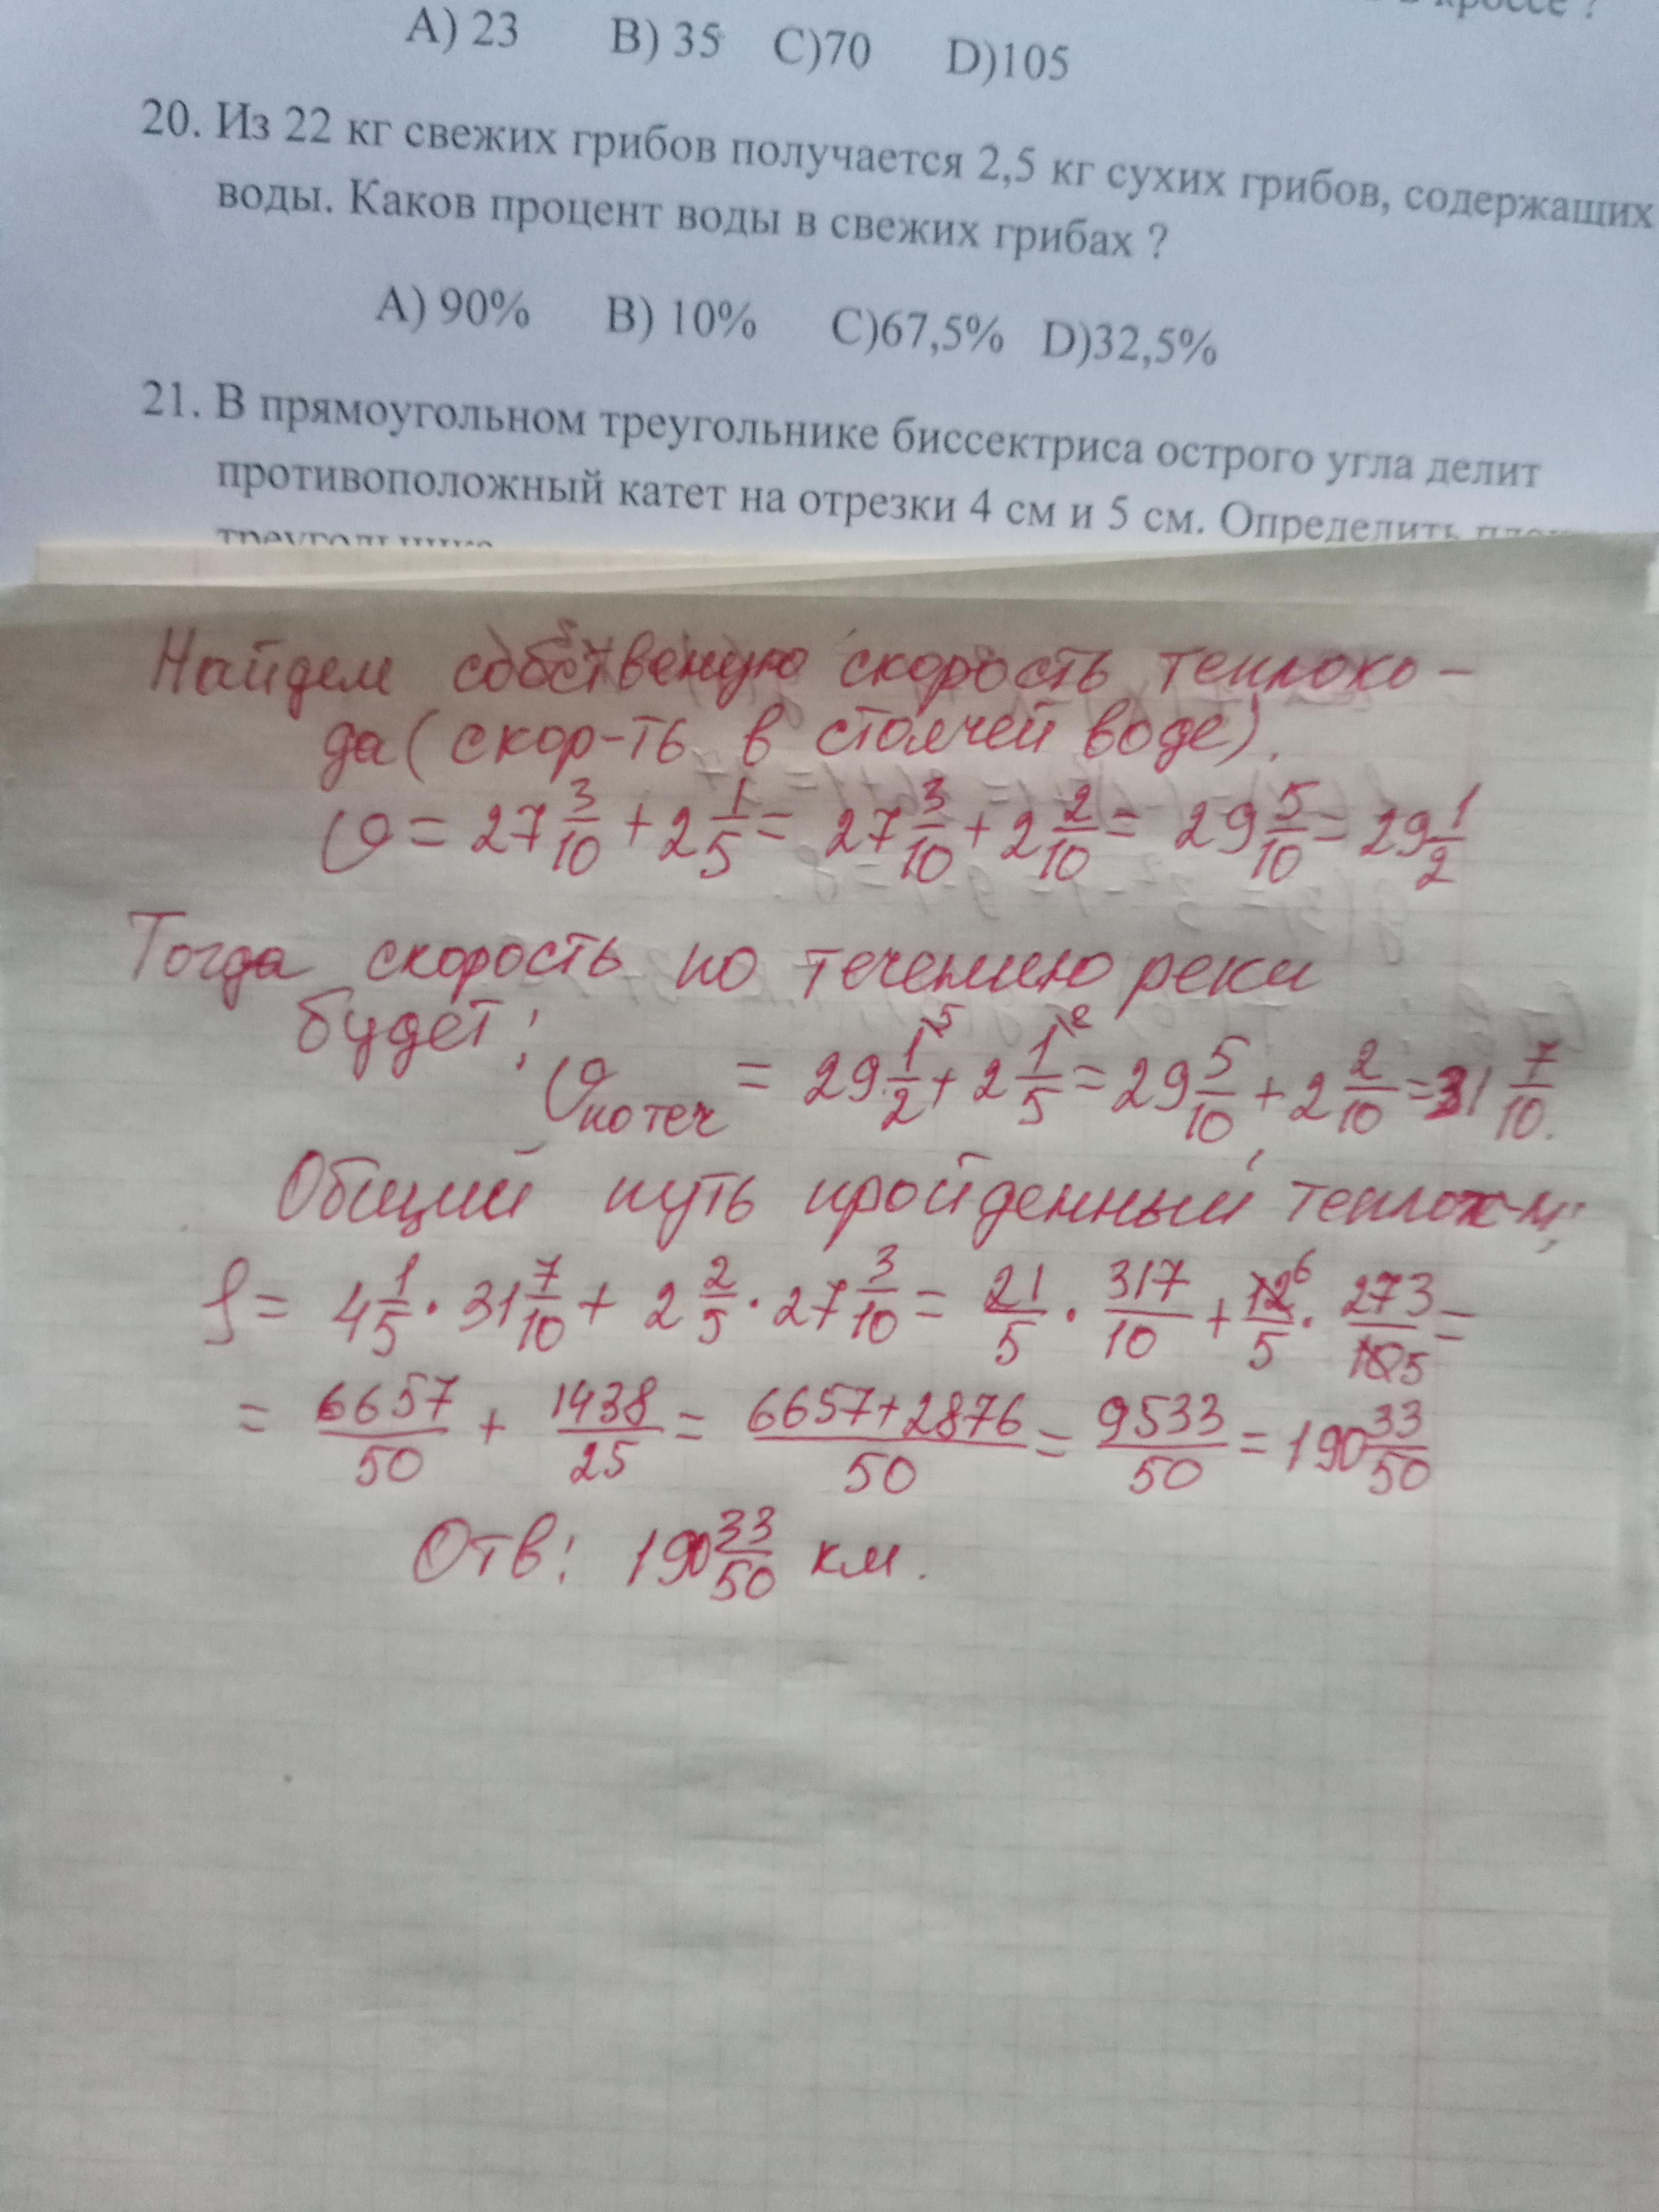 кроссе ?
A) 23 B) 35 C)70 D)105
20. Из 22 кг свежих грибов получается 2,5 кг сухих грибов, содержащих
воды. Каков процент воды в свежих грибах ?
A) 90% B) 10% C)67,5% D)32,5%
21. В прямоугольном треугольнике биссектриса острого угла делит
противоположный катет на отрезки 4 см и 5 см. Определить
Найдем собственую скорость теплохо-
да (скор-ть в стоячей воде).
V = 27 3/10 + 2 1/5 = 27 3/10 + 2 2/10 = 29 5/10 = 29 1/2
Тогда скорость по течению реки
будет:
V по теч = 29 1/2 + 2 1/5 = 29 5/10 + 2 2/10 = 31 7/10.
Общий путь пройденный теплох-м:
S = 4 1/5 · 31 7/10 + 2 2/5 · 27 3/10 = 21/5 · 317/10 + 12/5 · 273/10 =
= 6657/50 + 1438/25 = 6657+2876/50 = 9533/50 = 190 33/50
Отв: 190 33/50 км.